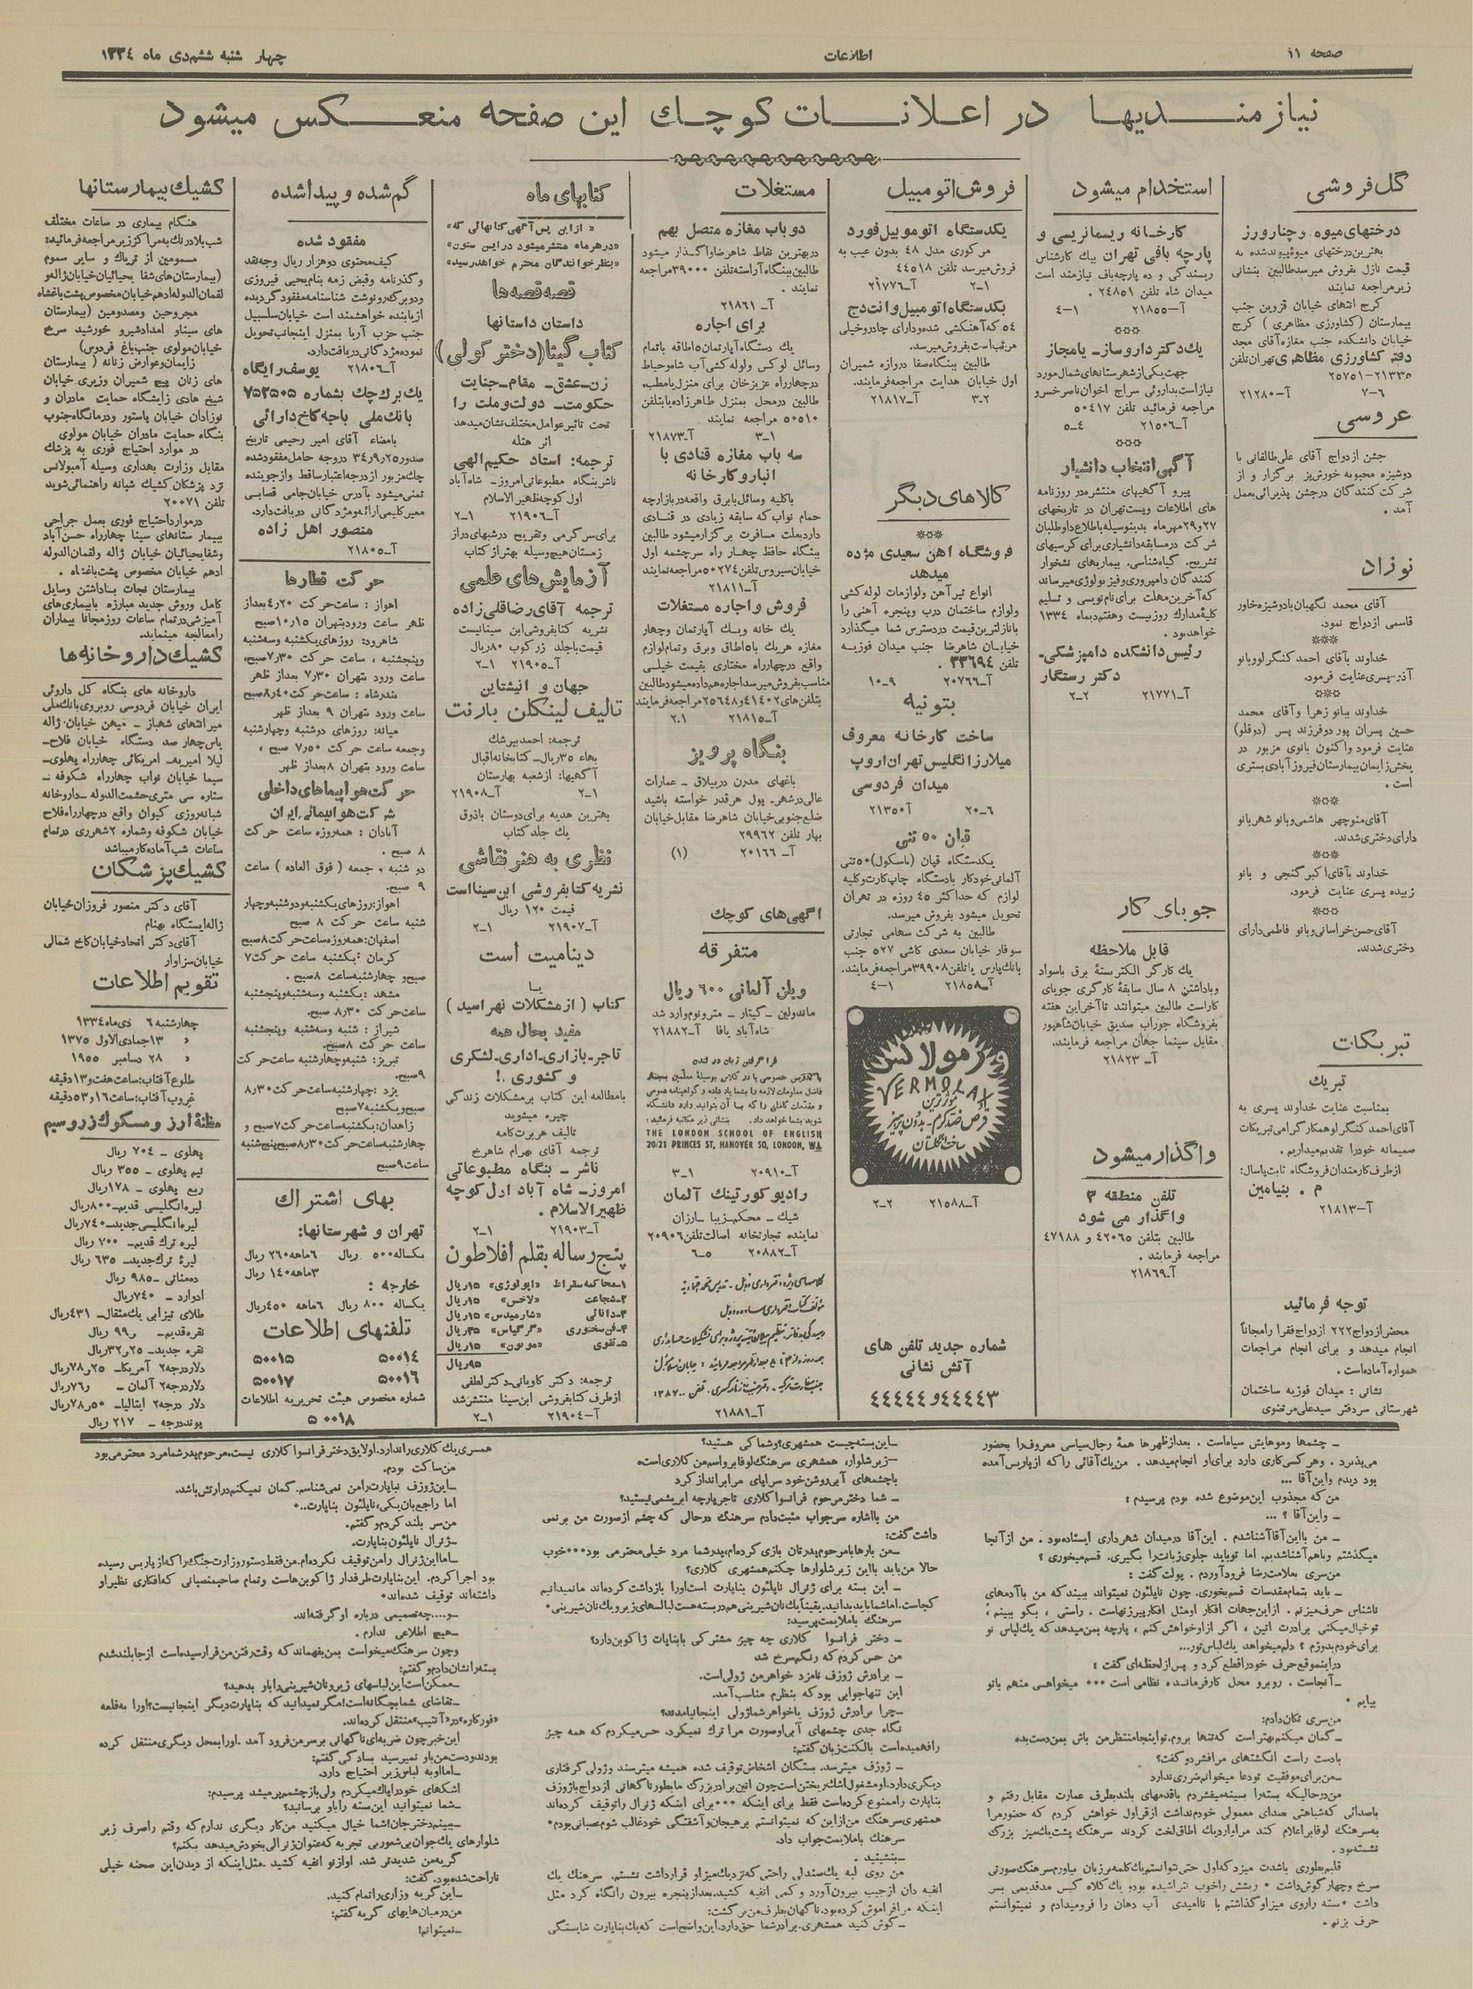 صفحه ۱۱
اطلاعات
چهار شنبه ششم دی ماه ۱۳۳۴
نیازمندیها در اعلانات کوچك این صفحه منعکس میشود
گل فروشی
درختهای میوه و چنار و رز
بهترین درختهای میوه پیوند شده به
قیمت نازل بفروش میرسد طالبین بنشانی
زیر مراجعه نمایند
کرج انتهای خیابان قزوین جنب
بیمارستان (کشاورزی مظاهری) کرج
خیابان دانشکده جنب مغازه آقای مجد
دفتر کشاورزی مظاهری تهران تلفن
۲۱۳۳۵-۲۵۷۵۱
۷-۶ آ-۲۱۲۸۰
عروسی
جشن ازدواج آقای علی طالقانی با
دوشیزه محبوبه خورش‌یز برگزار و از
شرکت کنندگان در جشن پذیرائی بعمل
آمد .
نوزاد
آقای محمد نگهبان با دوشیزه خاور
قاسمی ازدواج نمود.
***
خداوند بآقای احمد کنگرلو و بانو
آذر-پسری عنایت فرمود.
***
خداوند ببانو زهرا و آقای محمد
حسین پسران پور دو فرزند پسر (دوقلو)
عنایت فرمود واکنون بانوی مزبور در
بخش زایمان بیمارستان فیروزآبادی بستری
است .
***
آقای منوچهر هاشمی و بانو شهر بانو
دارای دختری شدند.
***
خداوند بآقای اکبر گنجی و بانو
زبیده پسری عنایت فرمود.
***
آقای حسن خراسانی و بانو فاطمی دارای
دختری شدند.
تبریکات
تبریك
بمناسبت عنایت خداوند پسری به
آقای احمد کنگرلو همکار گرامی تبریکات
صمیمانه خود را تقدیم میداریم.
از طرف کارمندان فروشگاه ثابت پاسال:
م . بنیامین
آ-۲۱۸۱۳
توجه فرمائید
محضر ازدواج ۲۲۲ ازدواج فقرا را مجاناً
انجام میدهد و برای انجام مراجعات
همواره آماده است.
نشانی : میدان فوزیه ساختمان
شهرستانی سردفتر سید علی مرتضوی
استخدام میشود
کارخانه ریسمانریسی و
پارچه بافی تهران بیك کارشناس
ریسندگی و ده پارچه باف نیازمند است
میدان شاه تلفن ۲۴۸۵۱ .
آ-۲۱۸۵۵ ۱-۴
***
یك دکتر داروساز- یا مجاز
جهت یکی از شهرستانهای شمال مورد
نیاز است بداروئی سراج اخوان ناصر خسرو
مراجعه فرمائید تلفن ۵۰۴۱۷
آ-۲۱۵۰۶ ۴-۵
***
آگهی انتخاب دانشیار
پیرو آگهیهای منتشره در روزنامه
های اطلاعات و پست تهران در تاریخهای
۲۷ و ۲۹ مهر ماه بدینوسیله باطلاع داوطلبان
شرکت در مسابقه دانشیاری برای کرسیهای
تشریح. گیاه شناسی. بیماریهای نشخوار
کنندگان دامپروری و فیزیولوژی میرساند
که آخرین مهلت برای نام نویسی و تسلیم
کلیه مدارك روز بیست و هفتم دیماه ۱۳۳۴
خواهد بود .
رئیس دانشکده دامپزشکی-
دکتر رستگار
آ-۲۱۷۷۱ ۲-۲
جویای کار
قابل ملاحظه
یك کارگر الکتریسته برق باسواد
و با داشتن ۸ سال سابقهٔ کارگری جویای
کار است طالبین میتوانند تا آخر این هفته
بفروشگاه جوراب صدیق خیابان شاهپور
مقابل سینما جهان مراجعه فرمایند.
آ-۲۱۸۲۳
واگذار میشود
تلفن منطقه ۳
واگذار می شود
طالبین بتلفن ۴۲۰۶۵ و ۴۷۱۸۸
مراجعه فرمایند .
آ-۲۱۸۶۹
فروش اتومبیل
یکدستگاه اتوموبیل فورد
مرکوری مدل ۴۸ بدون عیب به
فروش میرسد تلفن ۴۴۵۱۸
۱-۲ آ-۲۱۷۷۶
یکدستگاه اتومبیل وانت دج
۵۴ که آهنکشی شده و دارای چادر و خیلی
مرتب است بفروش میرسد.
طالبین ببنگاه صفا دروازه شمیران
اول خیابان هدایت مراجعه فرمایند.
۲-۳ آ-۲۱۸۱۷
کالاهای دیگر
***
فروشگاه اهن سعیدی مژده
میدهد
انواع تیر آهن و لوازمات لوله کشی
و لوازم ساختمان درب و پنجره آهنی را
با نازلترین قیمت در دسترس شما میگذارد
خیابان شاهرضا جنب میدان فوزیه
تلفن ۳۳۶۹۴ .
آ-۲۰۷۶۶ ۹-۱۰
بتونیه
ساخت کارخانه معروف
میلارز انگلیس تهران اروپ
میدان فردوسی
۶-۲۰ آ-۲۱۳۵۰
قپان ۵۰ تنی
یکدستگاه قپان (باسکول) ۵۰ تنی
آلمانی خودکار با دستگاه چاپ کارت و کلیه
لوازم که حداکثر ۴۵ روزه در تهران
تحویل میشود بفروش میرسد.
طالبین به شرکت سهامی تجارتی
سوفار خیابان سعدی کاشی ۵۲۷ جنب
بانك پارس یا تلفن ۳۹۹۰۸ مراجعه فرمایند.
آ-۲۱۸۵۸ ۱-۴
ورمولاکس
VERMOLAX
مؤثرترین
قرص ضد کرم - بدون پرهیز
ساخت انگلستان
آ-۲۱۵۸۸ ۲-۲
شماره جدید تلفن های
آتش نشانی
۴۴۴۴۳ و ۴۴۴۴۴
مستغلات
دو باب مغازه متصل بهم
در بهترین نقاط شاهرضا واگذار میشود
طالبین ببنگاه آراسته تلفن ۳۹۰۰۰ مراجعه
نمایند .
آ-۲۱۸۶۱
برای اجاره
یك دستگاه آپارتمان ۵ اطاقه با تمام
وسائل لوکس و لوله کشی آب شاه و حیاط
در چهارراه عزیزخان برای منزل یا مطب.
طالبین در محل بمنزل طاهرزاده یا بتلفن
۵۰۵۱۰ مراجعه نمایند
۱-۳ آ-۲۱۸۷۳
سه باب مغازه قنادی با
انبار و کارخانه
با کلیه وسائل با برق واقعه در بازارچه
حمام نواب که سابقه زیادی در قنادی
دارد بعلت مسافرت برگزار میشود طالبین
ببنگاه حافظ چهار راه سرچشمه اول
خیابان سیروس تلفن ۵۰۲۷۴ مراجعه نمایند
آ-۲۱۸۱۱
فروش و اجاره مستغلات
یك خانه و یك آپارتمان و چهار
مغازه هریك با ۵ اطاق و برق و تمام لوازم
واقع در چهارراه مختاری بقیمت خیلی
مناسب بفروش میرسد اجاره هم داده میشود طالبین
بتلفن‌های ۴۱۴۰۲ و ۲۵۶۴۸ مراجعه فرمایند
آ-۲۱۸۱۵ ۱-۲
بنگاه پرویز
باغهای مدرن در ییلاق - عمارات
عالی در شهر- پول هر قدر خواسته باشید
ضلع جنوبی خیابان شاهرضا مقابل خیابان
بهار تلفن ۲۹۹۶۲
آ-۲۰۱۶۶ (۱)
اگهی‌های کوچك
متفرقه
ویلن آلمانی ۶۰۰ ریال
ماندولین - گیتار - مترونوم وارد شد
شاه آباد بافا آ-۲۱۸۸۲
فرا گرفتن زبان در خانه
THE LONDON SCHOOL OF ENGLISH
20/21 PRINCES ST, HANOVER SQ, LONDON, W.1.
آ-۲۰۹۱۰ ۱-۳
رادیو کورتینك آلمان
شیك - محکم - زیبا - ارزان
نماینده تجارتخانه اصالت تلفن ۲۰۹۰۶
آ-۲۰۸۸۲ ۵-۶
آ-۲۱۸۸۱
کتابهای ماه
« از این پس آگهی کتابهائی که»
«در هر ماه منتشر میشود در این ستون»
«بنظر خوانندگان محترم خواهد رسید»
قصه قصه‌ها
داستان داستانها
کتاب گیتا (دختر کولی)
زن-عشق- مقام-جنایت
حکومت- دولت و ملت را
تحت تاثیر عوامل مختلف نشان میدهد
اثر هتله
ترجمه: استاد حکیم الهی
ناشر بنگاه مطبوعاتی امروز- شاه آباد
اول کوچه ظهیرالاسلام
آ-۲۱۹۰۶ ۱-۲
برای سرگرمی و تفریح در شبهای دراز
زمستان هیچ وسیله بهتر از کتاب
آزمایش‌های علمی
ترجمه آقای رضا قلی‌زاده
نشریه کتابفروشی ابن سینا نیست
قیمت با جلد زرکوب ۸۰ ریال
آ-۲۱۹۰۵ ۱-۲
جهان و انیشتاین
تالیف لینکلن بارنت
ترجمه: احمد بیرشك
بهاء ۳۵ ریال- کتابخانه اقبال
آگهیها: از شعبه بهارستان
۱-۲ آ-۲۱۹۰۸
بهترین هدیه برای دوستان باذوق
یك جلد کتاب
نظری به هنر نقاشی
نشریه کتابفروشی ابن سینا است
قیمت ۱۲۰ ریال
آ-۲۱۹۰۷ ۱-۲
دینامیت است
یا
کتاب (از مشکلات نهراسید)
مفید بحال همه
تاجر-بازاری-اداری-لشگری
و کشوری .!
با مطالعه این کتاب بر مشکلات زندگی
چیره میشوید
تالیف هربرت کامه
ترجمه آقای بهرام شاهرخ
ناشر - بنگاه مطبوعاتی
امروز- شاه آباد اول کوچه
ظهیرالاسلام .
آ-۲۱۹۰۳ ۱-۲
پنج رساله بقلم افلاطون
۱-محاکمه سقراط «اپولوژی» ۱۵ ریال
۲-شجاعت «لاخس» ۱۵ ریال
۳-دانائی «شارمیدس» ۱۵ ریال
۴-فن سخنوری «گرگیاس» ۳۵ ریال
۵-تقوی «مونون» ۱۵ ریال
۹۵ ریال
ترجمه: دکتر کاویانی-دکتر لطفی
از طرف کتابفروشی ابن سینا منتشر شد
آ-۲۱۹۰۴ ۱-۲
گم شده و پیدا شده
مفقود شده
کیف محتوی دو هزار ریال وجه نقد
و گذرنامه و قبض زمه بنام یحیی فیروزی
و دو برگ رونوشت شناسنامه مفقود گردیده
از یابنده خواهشمند است خیابان سلسبیل
جنب حزب آریا بمنزل اینجانب تحویل
نموده مژدگانی دریافت دارد.
آ-۲۱۸۰۶ یوسف رایگاه
یك برك چك بشماره ۷۵۳۵۰۵
بانك ملی باجه کاخ دارائی
بامضاء آقای امیر رحیمی تاریخ
صدور ۲۵ر۹ر۳۴ در وجه حامل مفقود شده
چك مزبور از درجه اعتبار ساقط و از جوینده
تمنی میشود بآدرس خیابان جامی قصابی
معیر کلیمی ارائه و مژدگانی دریافت دارد.
منصور اهل زاده
آ-۲۱۸۰۵
حرکت قطارها
اهواز : ساعت حرکت ۲۰ر۴ بعد از
ظهر ساعت ورود بتهران ۱۵ر۱۰ صبح
شاهرود: روزهای یکشنبه و سه شنبه
و پنجشنبه ، ساعت حرکت ۳۰ر۷ صبح،
ساعت ورود بتهران ۳۰ر۷ بعد از ظهر
بندر شاه : ساعت حرکت ۴۰ر۸ صبح
ساعت ورود بتهران ۹ بعد از ظهر
میانه: روزهای دوشنبه و چهار شنبه
و جمعه ساعت حرکت ۵۰ر۷ صبح ،
ساعت ورود بتهران ۸ بعد از ظهر
حرکت هواپیماهای داخلی
شرکت هواپیمائی ایران
آبادان : همه روزه ساعت حرکت
۸ صبح .
دو شنبه ، جمعه (فوق العاده) ساعت
۹ صبح.
اهواز: روزهای یکشنبه و دوشنبه و چهار
شنبه ساعت حرکت ۸ صبح
اصفهان: همه روزه ساعت حرکت ۸ صبح
کرمان : یکشنبه ساعت حرکت ۷
صبح و چهارشنبه ساعت ۸ صبح .
مشهد : یکشنبه و سه شنبه و پنجشنبه
ساعت حرکت ۳۰ر۸ صبح.
شیراز : شنبه و سه شنبه و پنجشنبه
ساعت حرکت ۸ صبح.
تبریز: شنبه و چهارشنبه ساعت حرکت
۹ صبح.
یزد : چهارشنبه ساعت حرکت ۳۰ر۸
صبح و یکشنبه ۷ صبح
زاهدان: یکشنبه ساعت حرکت ۷ صبح و
چهارشنبه ساعت حرکت ۳۰ر۸ صبح پنج شنبه
ساعت ۹ صبح
بهای اشتراك
تهران و شهرستانها:
یکساله ۵۰۰ ریال ۶ ماهه ۲۶۰ ریال
۳ ماهه ۱۴۰ ریال
خارجه :
یکساله ۸۰۰ ریال ۶ ماهه ۴۵۰ ریال
تلفنهای اطلاعات
۵۰۰۱۴ ۵۰۰۱۵
۵۰۰۱۶ ۵۰۰۱۷
شماره مخصوص هیئت تحریریه اطلاعات
۵۰۰۱۸
کشیك بیمارستانها
هنگام بیماری در ساعات مختلف
شب بلادرنك به مراکز زیر مراجعه فرمائید:
مسمومین از تریاك و سایر سموم
(بیمارستان‌های شفا یحیائیان خیابان ژاله و
لقمان الدوله ادهم خیابان مخصوص پشت باغشاه
مجروحین و مصدومین (بیمارستان
های سینا و امداد شیر و خورشید سرخ
خیابان مولوی جنب باغ فردوس)
زایمان و عوارض زنانه (بیمارستان
های زنان پیچ شمیران وزیری خیابان
شیخ هادی زایشگاه حمایت مادران و
نوزادان خیابان پاستور و درمانگاه جنوب
بنگاه حمایت مادران خیابان مولوی
در موارد احتیاج فوری به پزشك
مقابل وزارت بهداری وسیله آمبولانس
نزد پزشکان کشیك شبانه راهنمائی شوید
تلفن ۲۰۰۷۱
در موارد احتیاج فوری بعمل جراحی
بیمارستانهای سینا چهارراه حسن آباد
و شفا یحیائیان خیابان ژاله و لقمان الدوله
ادهم خیابان مخصوص پشت باغشاه .
بیمارستان نجات با داشتن وسایل
کامل و روش جدید مبارزه با بیماری‌های
آمیزشی در تمام ساعات روز مجانا بیماران
را معالجه مینماید.
کشیك داروخانه‌ها
داروخانه های بنگاه کل داروئی
ایران خیابان فردوسی روبروی بانك ملی
میرانتهای شهباز - میهن خیابان ژاله
یاس چهار صد دستگاه خیابان فلاح-
لیلا امیریه- امریکائی چهارراه پهلوی-
سیما خیابان نواب چهارراه شکوفه -
ستاره سی متری حشمت الدوله - داروخانه
شبانه روزی کیوان واقع در چهارراه فلاح
خیابان شکوفه و شماره ۲ شهرری در تمام
ساعات شب آماده کار میباشد
کشیك پزشکان
آقای دکتر منصور فروزان خیابان
ژاله ایستگاه بهنام
آقای دکتر اتحاد خیابان کاخ شمالی
خیابان سزاوار
تقویم اطلاعات
چهارشنبه ۶ دی ماه ۱۳۳۴
» ۱۳ جمادی الاول ۱۳۷۵
» ۲۸ دسامبر ۱۹۵۵
طلوع آفتاب: ساعت هفت و ۱۳ دقیقه
غروب آفتاب: ساعت ۱۶ و ۵۳ دقیقه
مظنهٔ ارز و مسکوك زر و سیم
پهلوی - ۷۰۴ ریال
نیم پهلوی - ۳۵۵ ریال
ربع پهلوی - ۱۷۸ ریال
لیره انگلیسی قدیم- ۸۰۰ ریال
لیره انگلیسی جدید- ۷۴۰ ریال
لیره ترك قدیم- ۷۰۰ ریال
لیرهٔ ترك جدید- ۶۳۵ ریال
ده مناتی -۹۸۵ ریال
ادوارد - ۷۴۰ ریال
طلای تیزابی یك مثقال- ۴۳۱ ریال
نقره قدیم- ۹۹ر ریال
نقره جدید- ۲۵ر۳۲ ریال
دلار درجه ۲ آمریکا- ۲۵ر۷۸ ریال
دلار درجه ۲ آلمان - ۷۶ر ریال
دلار درجه ۲ ایتالیا- ۵۰ر۷۸ ریال
پوند درجه - ۲۱۷ ریال
- چشمها و موهایش سیاه است . بعد از ظهرها همهٔ رجال سیاسی معروف را بحضور
می‌پذیرد . و هر کسی کاری دارد برای او انجام میدهد . من یك آقائی را که از پاریس آمده
بود دیدم و این آقا ...
من که مجذوب این موضوع شده بودم پرسیدم :
- و این آقا ؟ ...
- من با این آقا آشنا شدم . این آقا در میدان شهرداری ایستاده بود . من از آنجا
میگذشتم و باهم آشنا شدیم. اما تو باید جلوی زبانت را بگیری. قسم میخوری ؟
من سری بعلامت رضا فرود آوردم . پولت گفت :
- باید بتمام مقدسات قسم بخوری. چون ناپلئون نمیتواند ببیند که من با آدمهای
ناشناس حرف میزنم . از این جهات افکار او مثل افکار پیرزنهاست . راستی ، بگو ببینم ؛
تو خیال میکنی برادرت اتین ، اگر از او خواهش کنم ، پارچه بمن میدهد که یك لباس نو
برای خودم بدوزم ؟ دلم میخواهد یك لباس تور...
در اینموقع حرف خود را قطع کرد و پس از لحظه‌ای گفت :
-آنجاست . روبرو محل کار فرمانده نظامی است ... میخواهی منهم با تو
بیایم .
من سری تکان دادم:
-گمان میکنم بهتر است که تنها بروم. تو اینجا منتظر من باش بمن دست بده
با دست راست انگشتهای مرا فشرد و گفت؟
-من برای موفقیت تو دعا میخوانم ضرری ندارد
من در حالیکه بسته را بسینه میفشردم با قدمهای بلند بطرف عمارت مقابل رفتم و
با صدائی که شباهتی بصدای معمولی خودم نداشت از قراول خواهش کردم که حضور مرا
بسرهنگ لوفابر اعلام کند مرا وارد یك اطاق لخت کردند سرهنك پشت یك میز بزرك
نشسته بود .
قلبم بطوری باشدت میزد که اول حتی نتوانستم یك کلمه بر زبان بیاورم سرهنك صورتی
سرخ و چهار گوش داشت . ریشش را خوب نتراشیده بود و یك کلاه گیس مد قدیمی بسر
داشت . بسته را روی میز او گذاشتم با ناامیدی آب دهان را فرو میدادم و نمیتوانستم
حرف بزنم .
-این بسته چیست همشهری؟ و شما کی هستید؟
-زیر شلوار، همشهری سرهنگ لوفابر و اسم من کلاری است.
با چشمهای آبی روشن خود سراپای مرا برانداز کرد
- شما دختر مرحوم فرانسوا کلاری تاجر پارچه ابریشمی نیستید؟
من با اشاره سر جواب مثبت دادم سرهنگ در حالی که چشم از صورت من بر نمی
داشت گفت:
-من بارها با مرحوم پدرتان بازی کرده‌ام، پدر شما مرد خیلی محترمی بود... خوب
حالا من باید با این زیر شلوارها چکنم همشهری کلاری؟
- این بسته برای ژنرال ناپلئون بناپارت است او را بازداشت کرده‌اند ما نمیدانیم
کجاست. اما شما باید بدانید. یقیناً یك نان شیرینی هم در بسته هست لباس‌های زیر و یك نان شیرینی.
سرهنگ با ملایمت پرسید:
- دختر فرانسوا کلاری چه چیز مشترکی با بناپات ژاکوبن دارد؟
من حس کردم که رنگم سرخ شد
- برادرش ژوزف نامزد خواهر من ژولی است.
این تنها جوابی بود که بنظرم مناسب آمد.
-چرا برادرش ژوزف یا خواهر شما ژولی اینجا نیامدند؟
نگاه جدی چشمهای آبی او صورت مرا ترك نمیکرد. حس میکردم که همه چیز
را فهمیده است با لکنت زبان گفتم:
- ژوزف میترسد. بستگان اشخاص توقیف شده همیشه میترسند و ژولی گرفتاری
دیگری دارد. او مشغول اشك ریختن است چون اتین برادر بزرك ما بطور ناگهانی ازدواج با ژوزف
بناپارت را ممنوع کرده است فقط برای اینکه ... برای اینکه ژنرال را توقیف کرده‌اند
همشهری سرهنگ من از این که نمیتوانستم بر هیجان و آشفتگی خود غالب شوم عصبانی بودم.
سرهنگ با ملایمت جواب داد.
-بنشینید .
من روی لبه یك صندلی راحتی که نزدیك میز او قرار داشت نشستم. سرهنك یك
انفیه دان از جیب بیرون آورد و کمی انفیه کشید. بعد از پنجره بیرون را نگاه کرد مثل
اینکه مرا فراموش کرده بود. ناگهان بطرف من برگشت:
-گوش کنید همشهری. برادر شما حق دارد. این واضح است که یك بناپارت شایستگی
همسری یك کلاری را ندارد. اولا یك دختر فرانسوا کلاری نیست. مرحوم پدر شما مرد محترمی بود
من ساکت بودم.
-این ژوزف بناپارت را من نمی‌شناسم. گمان نمیکنم در ارتش باشد.
اما راجع بآن یکی، ناپلئون بناپارت...
من سر بلند کردم و گفتم.
-ژنرال ناپلئون بناپارت.
-اما این ژنرال را من توقیف نکرده‌ام. من فقط دستور وزارت جنگ را که از پاریس رسیده
بود اجرا کردم. این بناپارت طرفدار ژاکوبن‌هاست و تمام صاحبمنصبانی که افکاری نظیر او
داشته‌اند توقیف شده‌اند.
-و...چه تصمیمی درباره او گرفته‌اند.
-هیچ اطلاعی ندارم .
وچون سرهنگ میخواست بمن بفهماند که وقت رفتن من فرا رسیده است از جا بلند شدم
بسته را نشان دادم و گفتم:
-ممکن است این لباسهای زیر و نان شیرینی را باو بدهید؟
-تقاضای شما بچگانه است! مگر نمیدانید که بناپارت دیگر اینجا نیست؟ او را به قلعه
«فورکاره» در «آنتیب» منتقل کرده‌اند.
این خبر چون ضربه‌ای ناگهانی بر سر من فرود آمد .او را بمحل دیگری منتقل کرده
بودند و دست من باو نمیرسید بسادگی گفتم:
-اما او به لباس زیر احتیاج دارد.
اشکهای خود را پاك میکردم ولی باز چشمم پر میشد پرسیدم:
-شما نمیتوانید این بسته را باو برسانید؟
-ببینم دختر جان! شما خیال میکنید من کار دیگری ندارم که وقتم را صرف زیر
شلوارهای یك جوان بی‌شعور بی تجربه که عنوان ژنرالی بخودش میدهد بکنم؟
گریه من شدیدتر شد. او از نو انفیه کشید .مثل اینکه از دیدن این صحنه خیلی
ناراحت شده بود. گفت:
-این گریه و زاری را تمام کنید.
من در میان هایهای گریه گفتم:
-نمیتوانم!